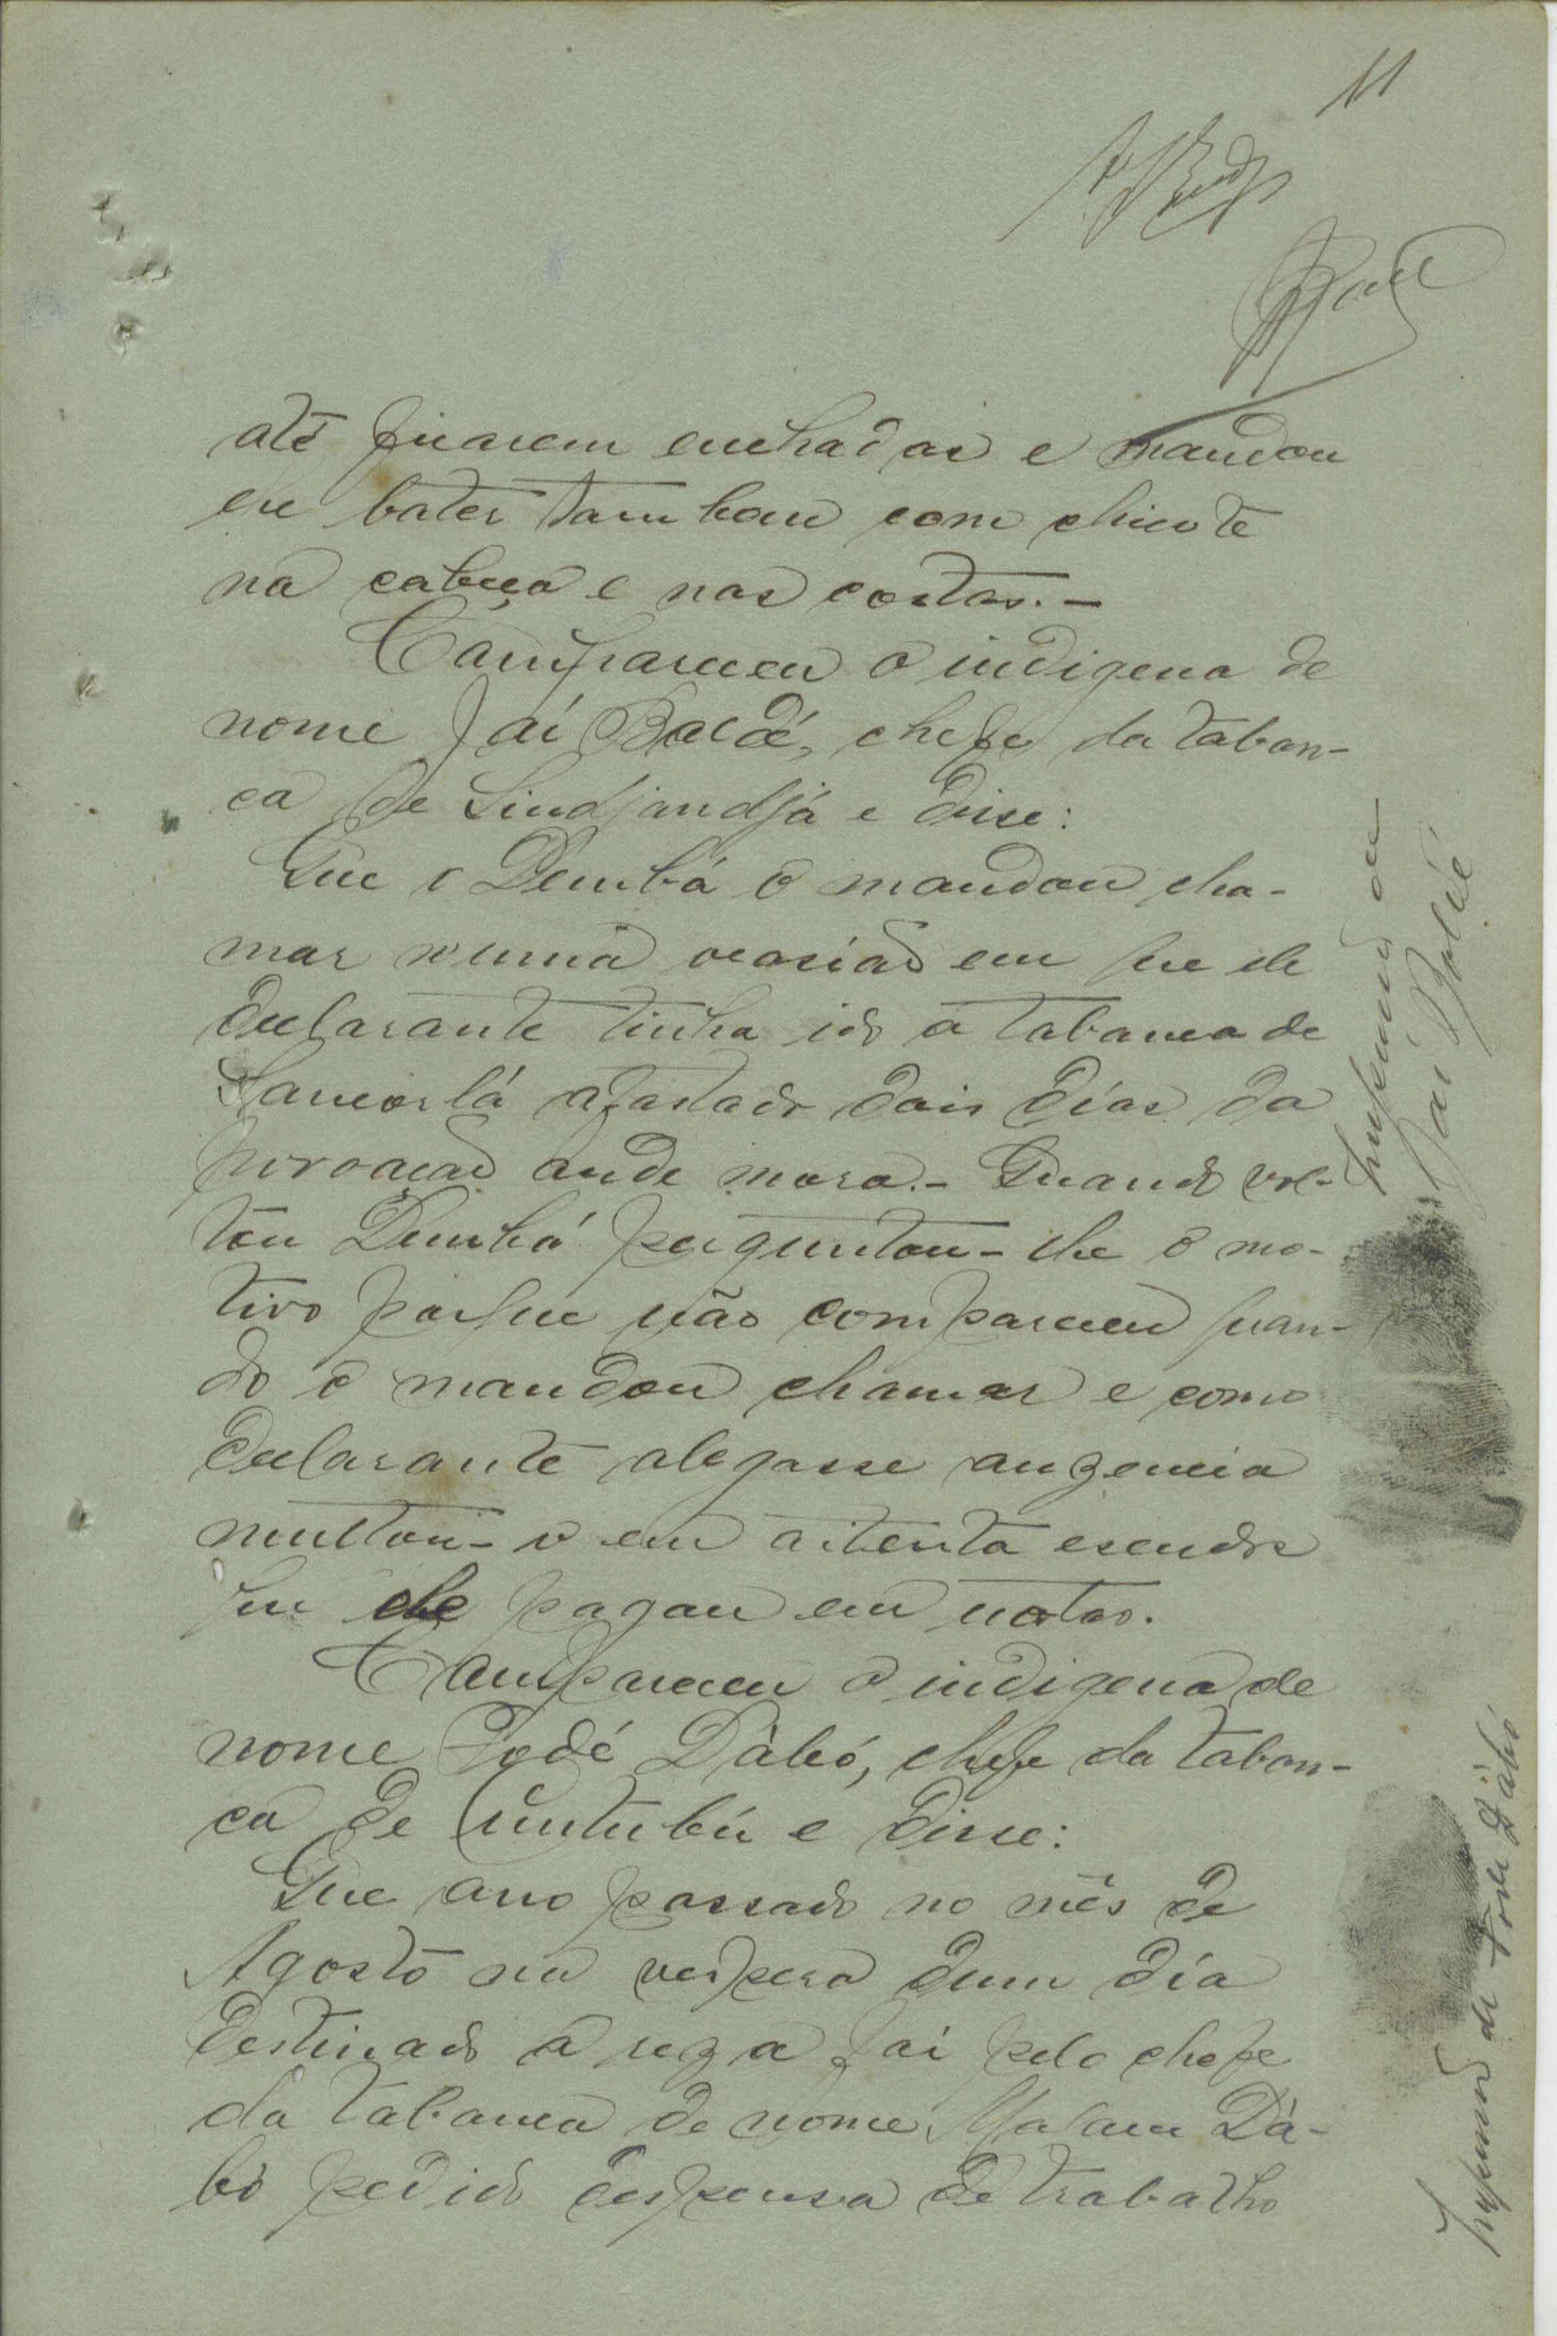 11
até ficarem enchadas e mandou
eu bater tambem com chicote
na cabeça e nas costas. -
Compareceu o indigena de
nome Jai Baldé, chefe da taban-
ca de Sindjandjá e disse:
Que o Dembá o mandou cha-
mar n'uma ocasião em que ele
declarante tinha ido a tabanca de
afastado dois dias da
povoação onde mora. - Quando vol-
tou Dembá perguntou-lhe o mo-
tivo porque não compareceu quan-
do o mandou chamar e como
declarante alegasse auzencia
multou-o em oitenta escudos
que ele pagou em notas.
Compareceu o indigena de
nome Fodé Dábó, chefe da taban-
ca de Cuntubú e disse:
Que ano passado no mês de
Agosto na vespera dum dia
destinado a reza foi pelo chefe
da tabanca de nome Malam Dá-
bó pedido despensa de trabalho
Impressão de
Jai Baldé
Impressão de Fodé Dábó